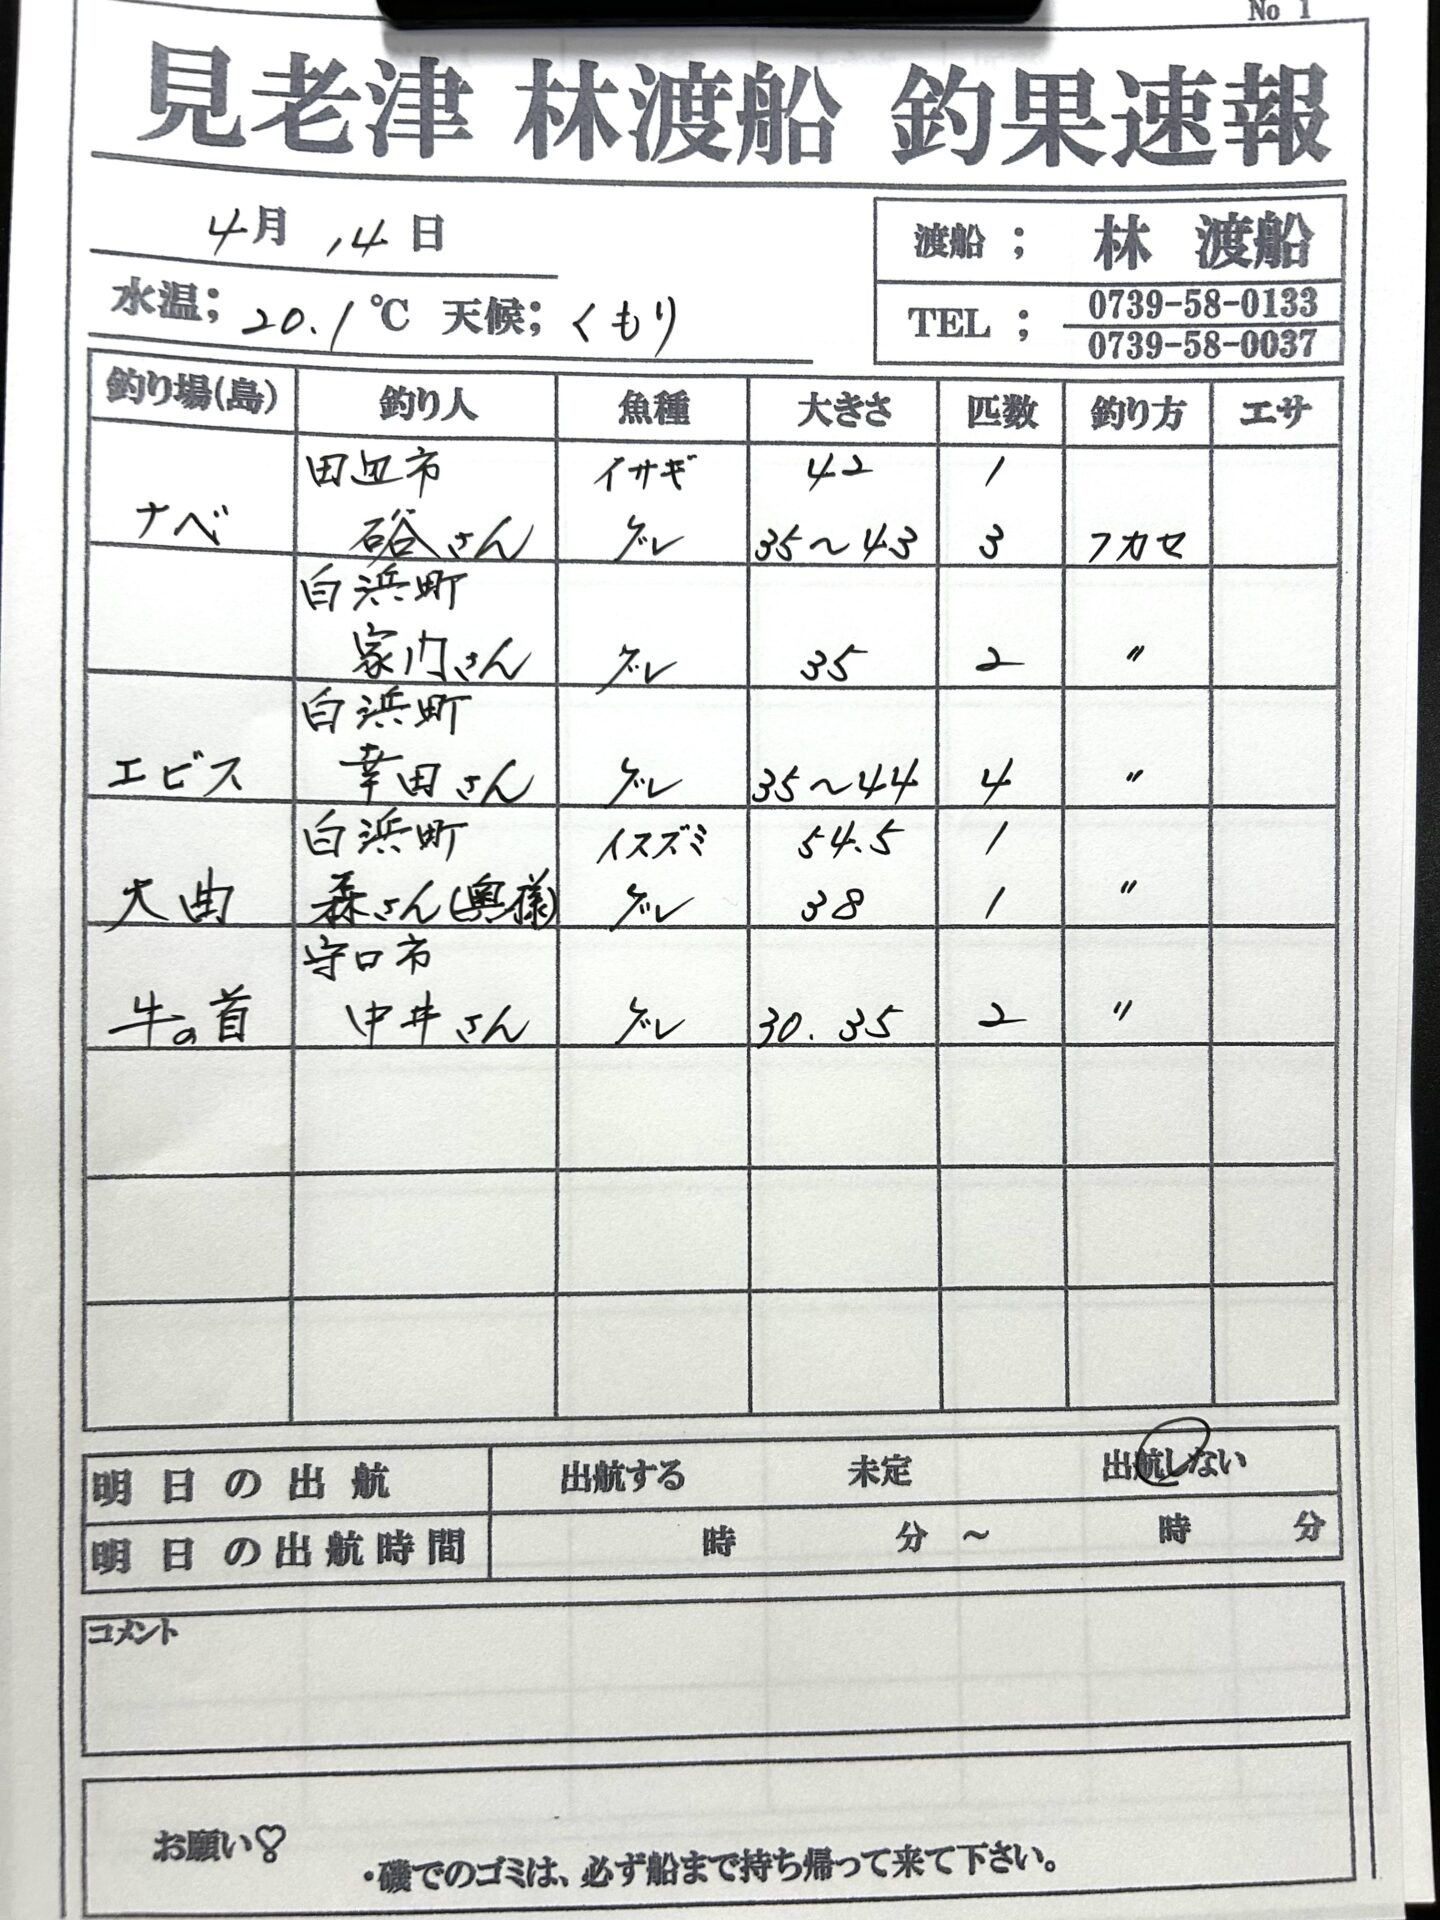 No 1
見老津 林渡船 釣果速報
4月 14日
渡船 ; 林 渡船
水温; 20.1℃ 天候; くもり
TEL ; 0739-58-0133
0739-58-0037
釣り場(島) 釣り人 魚種 大きさ 匹数 釣り方 エサ
田辺市 イサギ 42 1
ナベ 硲さん グレ 35〜43 3 フカセ
白浜町
家内さん グレ 35 2 〃
白浜町
エビス 幸田さん グレ 35〜44 4 〃
白浜町 イスズミ 54.5 1
大曲 森さん(奥様) グレ 38 1 〃
守口市
牛の首 中井さん グレ 30.35 2 〃
明日の出航 出航する 未定 出航しない
明日の出航時間 時 分 〜 時 分
コメント
お願い♡
・磯でのゴミは、必ず船まで持ち帰って来て下さい。